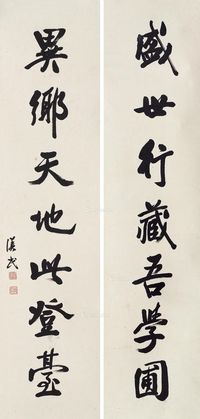 盛世行藏吾學圃
異鄉天地此登臺
漢民